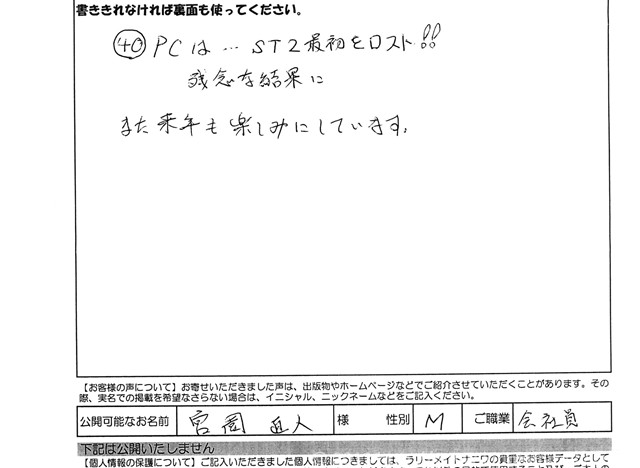 書ききれなければ裏面も使ってください。
㊵ PCは…ST2最初をロスト!!
残念な結果に
また来年も楽しみにしています。
【お客様の声について】お寄せいただきました声は、出版物やホームページなどでご紹介させていただくことがあります。その
際、実名での掲載を希望なさらない場合は、イニシャル、ニックネームなどをご記入ください。
公開可能なお名前 宮岡 直人 様 性別 M ご職業 会社員
下記は公開いたしません
【個人情報の保護について】ご記入いただきました個人情報につきましては、ラリーメイトナニワの貴重なお客様データとして